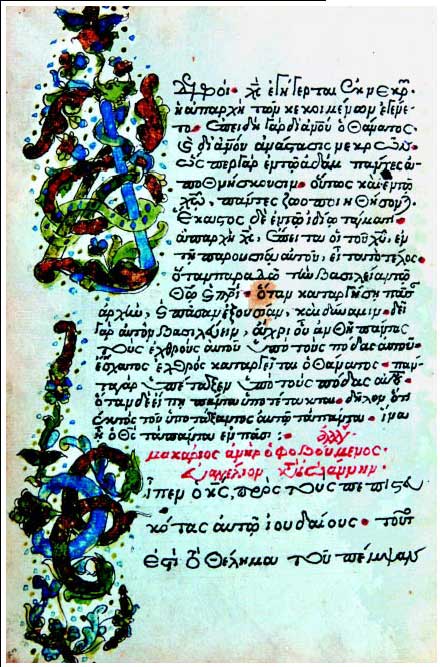 Ἀδελφοί· χ̅ς̅ ἐγήγερται ἐκ νεκρῶ̅
ἀπαρχὴ τῶν κεκοιμημένων ἐγένε
το· ἐπειδὴ γὰρ δι' ἀ̅ν̅ο̅υ̅ ὁ θάνατος·
καὶ δι' ἀ̅ν̅ο̅υ̅ ἀνάστασις νεκρῶν·
ὥσπερ γὰρ ἐν τῷ ἀδὰμ πάντες ἀ
ποθνήσκουσιν· οὕτως καὶ ἐν τῷ
χ̅ω̅, πάντες ζωοποιηθήσον
ἕκαστος δὲ ἐν τῷ ἰδίῳ τάγματι
ἀπαρχὴ χ̅ς̅, ἔπειτα οἱ τοῦ χ̅υ̅, ἐν
τῇ παρουσίᾳ αὐτοῦ, εἶτα τὸ τέλος·
ὅταν παραδῷ τὴν βασιλείαν τῷ
θ̅ῶ̅ καὶ π̅ρ̅ι̅· ὅταν καταργήσῃ πᾶσ
ἀρχὴν, καὶ πᾶσαν ἐξουσίαν, καὶ δύναμιν· δεῖ
γὰρ αὐτὸν βασιλεύειν, ἄχρι οὗ ἂν θῇ πάντας
τοὺς ἐχθροὺς αὐτοῦ ὑπὸ τοὺς πόδας αὐτοῦ·
ἔσχατος ἐχθρὸς καταργεῖται ὁ θάνατος· πάν
τα γὰρ ὑπέταξεν ὑπὸ τοὺς πόδας αὐτοῦ·
ὅταν δὲ εἴπῃ πάντα ὑποτέτακται· δῆλον ὅτι
ἐκτὸς τοῦ ὑποτάξαντος αὐτῷ τὰ πάντα· ἵνα
ᾖ ὁ θ̅ς̅ τὰ πάντα ἐν πᾶσι·
μακάριος ἀνὴρ ὁ φοβούμενος·
Εὐαγγέλιον
εἶπεν ὁ κ̅ς̅, πρὸς τοὺς πεπιστευ
κότας αὐτῷ ἰουδαίους· τοῦτό
ἐστι τὸ θέλημα τοῦ πέμψαν